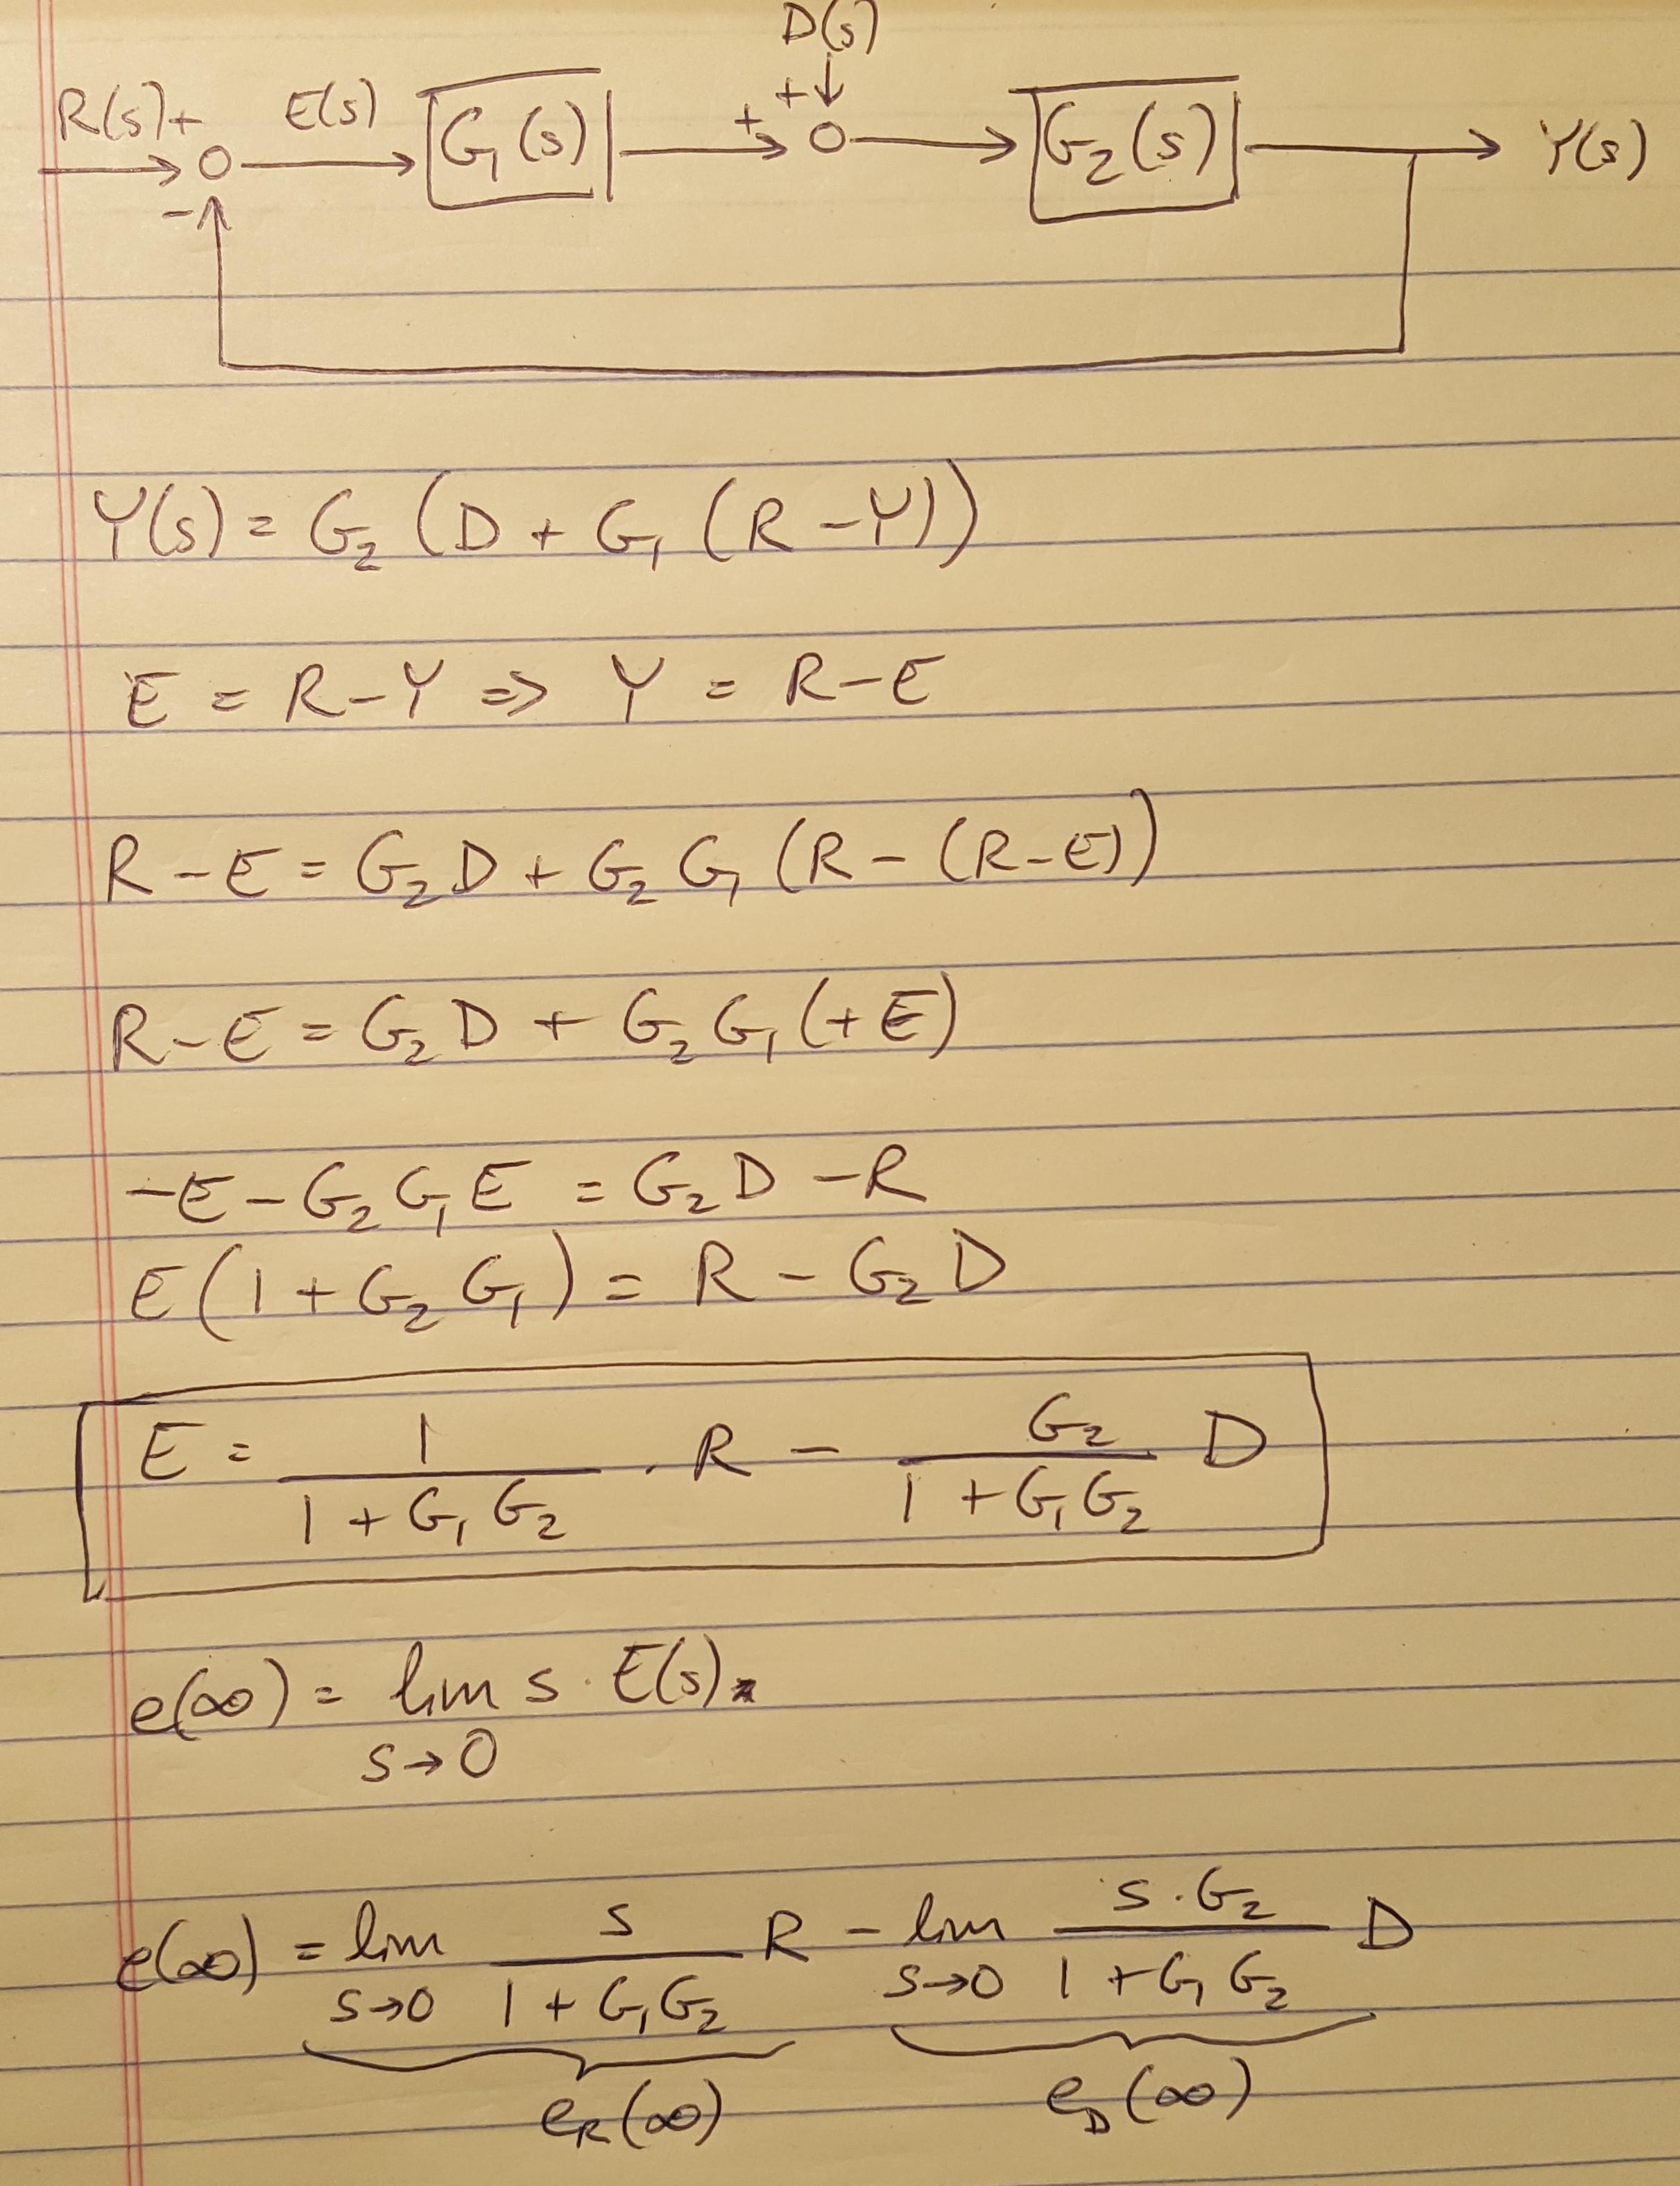 D(s)
R(s) + E(s) G₁(s) + + G₂(s) Y(s)
-
Y(s) = G₂ (D + G₁ (R - Y))
E = R - Y => Y = R - E
R - E = G₂ D + G₂ G₁ (R - (R - E))
R - E = G₂ D + G₂ G₁ (+ E)
- E - G₂ G₁ E = G₂ D - R
E (1 + G₂ G₁) = R - G₂ D
E = 1 / (1 + G₁ G₂) . R - G₂ / (1 + G₁ G₂) D
e(∞) = lim s · E(s)
s → 0
e(∞) = lim s→0 s / (1 + G₁ G₂) R - lim s→0 s · G₂ / (1 + G₁ G₂) D
e_R (∞) e_D (∞)